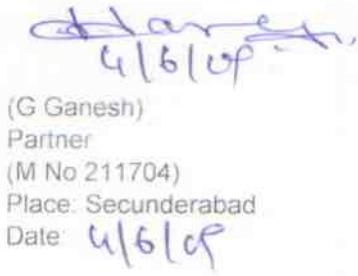 4/6/09
(G Ganesh)
Partner
(M No 211704)
Place: Secunderabad
Date: 4/6/09